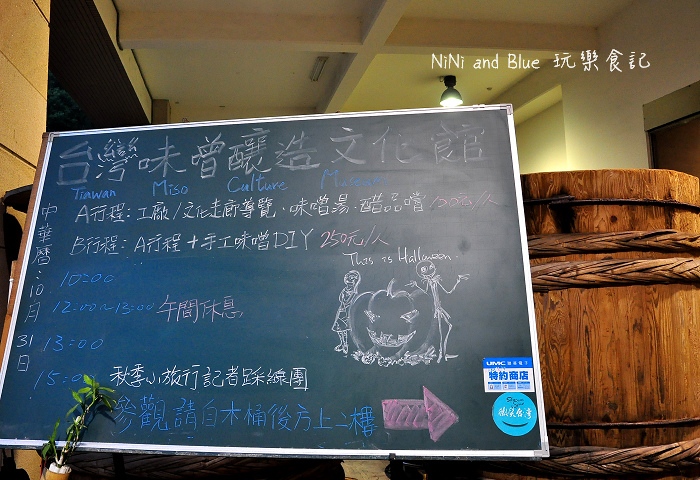 NiNi and Blue 玩樂食記
台灣味噌釀造文化館
Tiawan Miso Culture Museum
A行程：工廠/文化走廊導覽、味噌湯.醋品嚐 100元/人
B行程：A行程+手工味噌DIY 250元/人
This is Halloween..
中華曆：10月31日
10:00
12:00~13:00 午間休息
13:00
15:00 秋季小旅行記者踩線團
參觀請自木桶後方上二樓
UMC 聯華電子
特約商店
微笑台灣